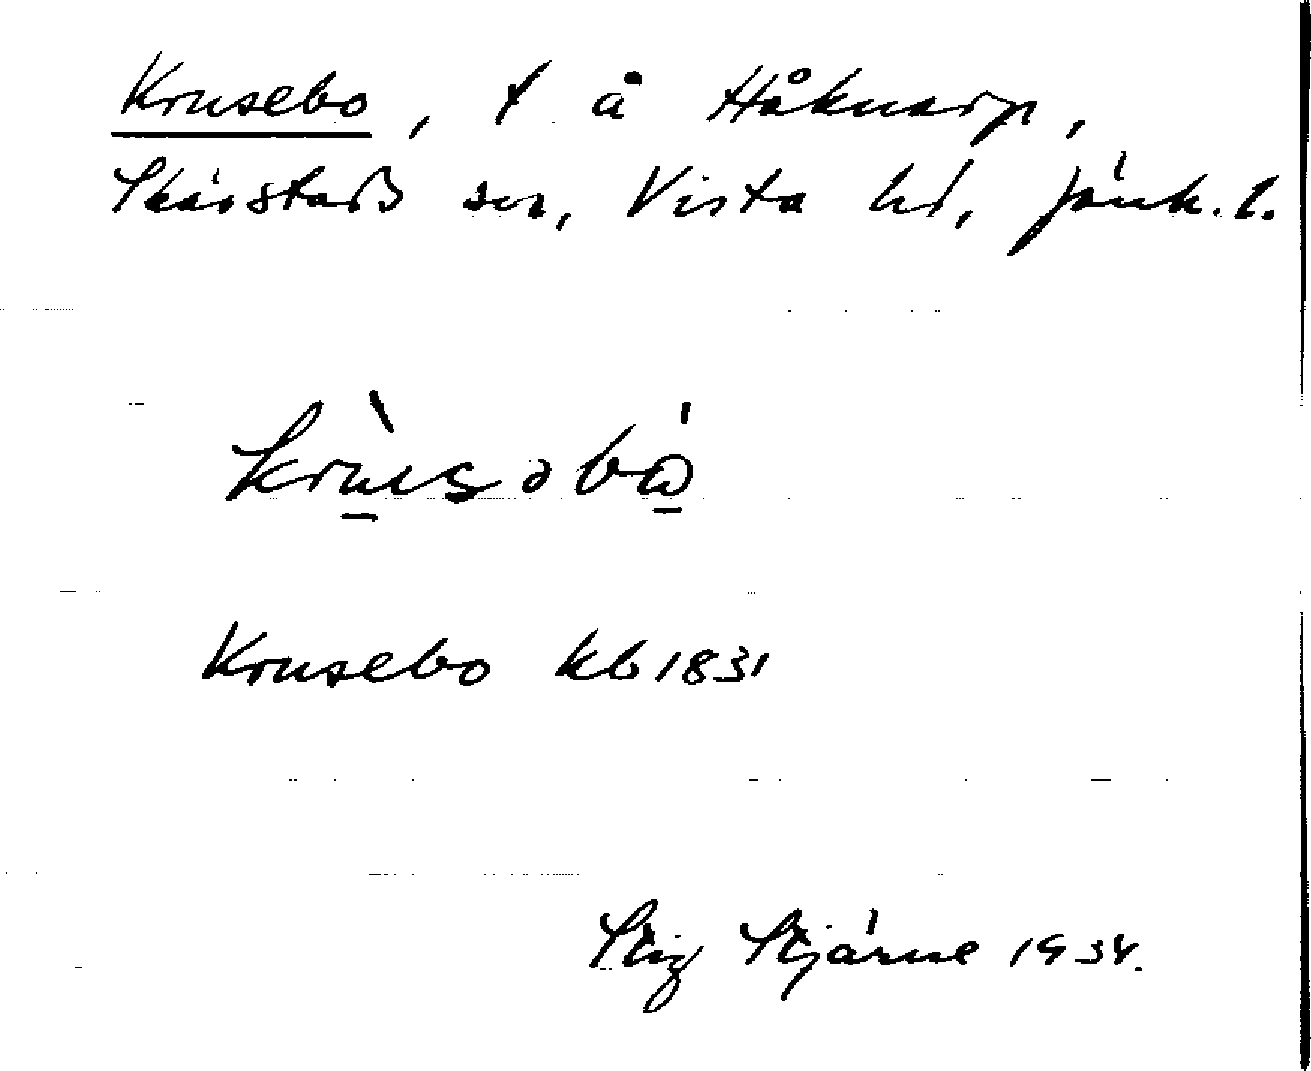 Krusebo, t å Håknarp,
Skärstads sn, Vista hd, Jönk. l.
krùsəbó
Krusebo kb 1831
Stig Stjärne 1934.